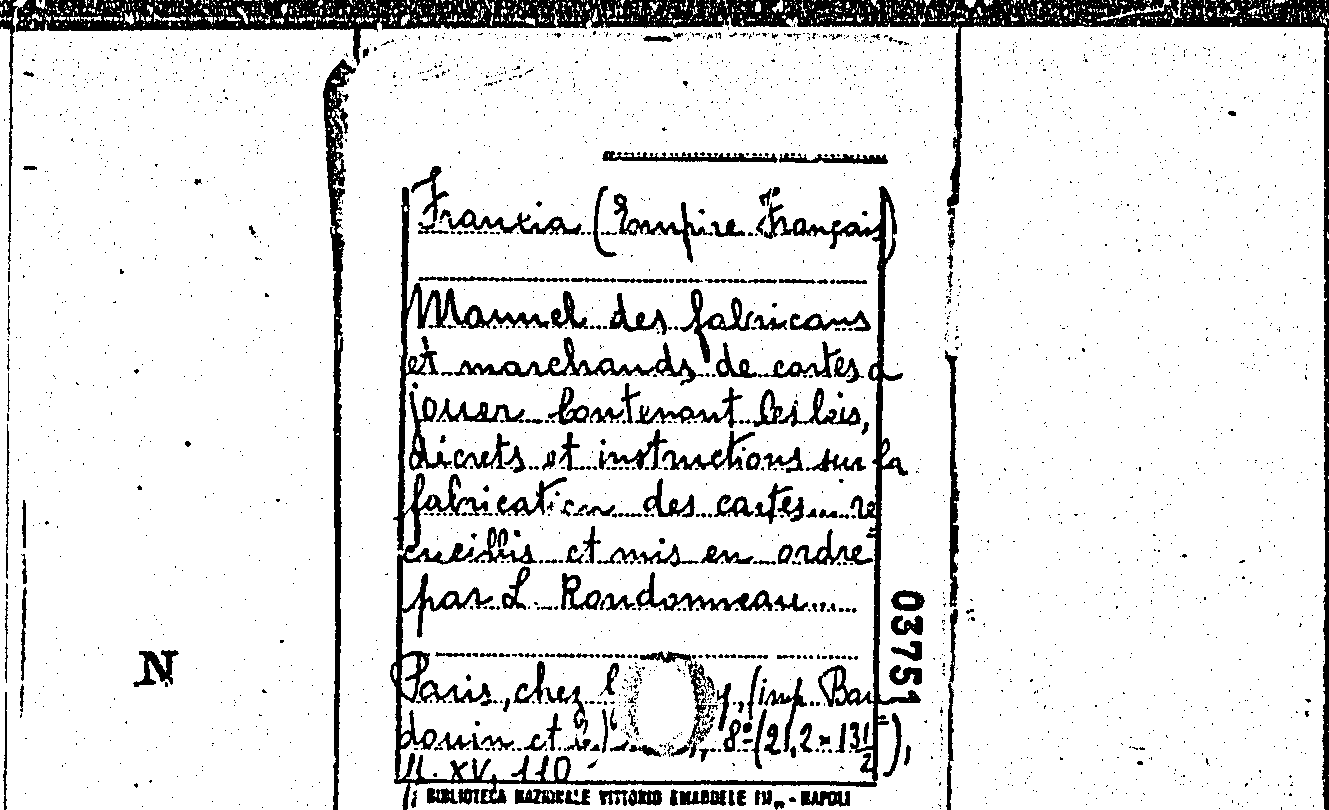 Franxia (Empire Français)
Manuel des fabricans
et marchands de cartes a
jouer contenant les lois,
décrets et instructions sur la
fabrication des cartes... re
cueillis et mis en ordre
par L. Rondonneau....
03751
N
Paris, chez (imp. Bau
douin et C.) 8º (21,2 × 13 1/2),
ff. XV, 110
BIBLIOTECA NAZIONALE VITTORIO EMANUELE III - NAPOLI